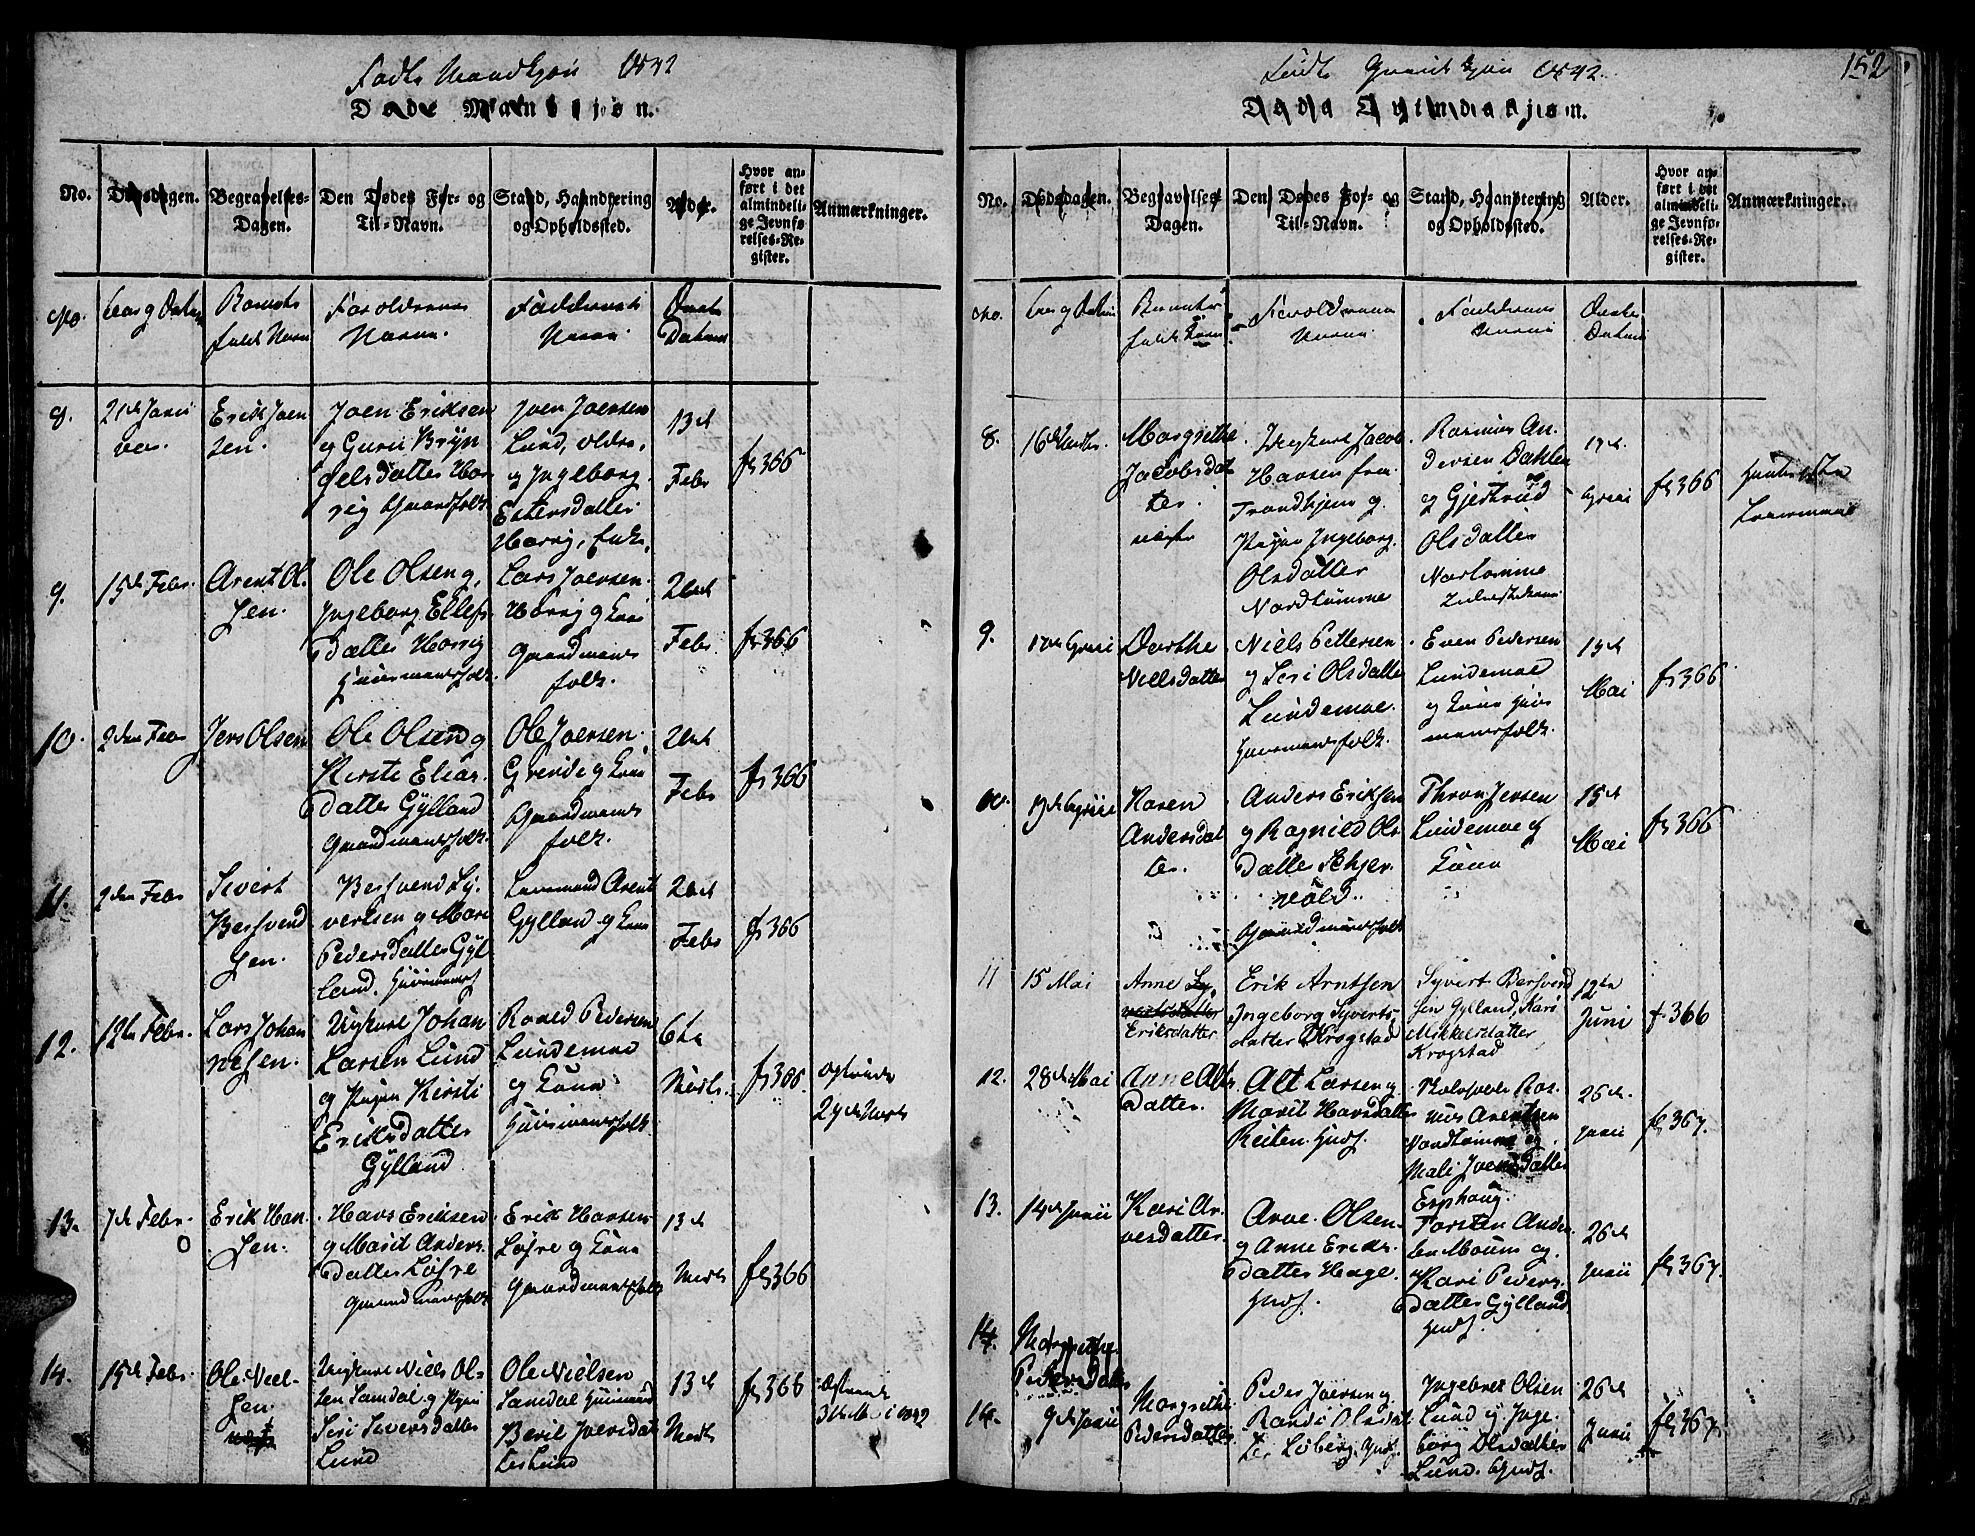 Fødte Mandkjøn 1842
Døde Mandkjøn.
No.
Dødsdagen.
Begravelses-
Dagen.
Den Dødes For- og
Til-Navn.
Stand, Haandtering
og Opholdssted.
Alder.
Hvor an-
ført i det
almindeli-
ge Jevnfø-
relses-Re-
gister.
Anmærkninger.
No.
Forældrenes
Navne
Faddernes
Navne
Daabs
Datum
8.
Erik Joen
sen.
Joen Eriksen
og Guru Bryn
gelsdatter Hor
rig Gaardfolk
Joen Joensen
Lund, ældre,
og Ingeborg
Horrig,
13de
Febr
fol 366
9.
15de Febr.
Arent Ol
sen.
Ole Olsen og
Ingeborg Ellefs
datter Horrig
Huusmansfolk
Lars Joensen
Horrig og Kone
Gaardmands
folk.
Febr
fol 366
10.
2den Febr
Jens Olsen
Ole Olsen og
Kirsti Elias
datter Gylland
Gaardmansfolk.
Ole Joensen
Grinde og Kone
Gaardmands
folk.
Febr
fol 366
11.
2den Febr
Sivert
Bersvend
sen.
Bersvend Sy-
vertsen og Mari
Pedersdatter Gyl
land. Huusmansf
Lensmand Arent
Gylland og Kone
Febr
fol 366
12.
12te Febr.
Lars Johan
nesen.
Ungkarl Johan
Larsen Lund
og Pigen Kirsti
Eriksdatter
Gylland
Roald Pedersen
Lundemoe
og Kone
Huusmansfolk
6te
Marts.
fol 366
13.
7de Febr.
Erik Han
sen.
Hans Eriksen
og Marit Anders
datter Løfre
Gaardmansfolk
Erik Hansen
Løfre og Kone
Gaardmansfolk
13de
Marts
fol 366
14.
15de Febr.
Ole Niel-
sen.
Ungkarl Niels Ol-
sen Samdal og Pigen
Siri Siversdatter
Lund
Ole Nielsen
Samdal Huusmand
Beril Joensdat
ter Lund
13de
Marts
fol 366
152
Fødte Qvindekjøn 1842.
Døde Qvindekjøn.
No.
Dødsdagen.
Begravelses-
Dagen.
Den Dødes For- og
Til-Navn.
Stand, Haandtering
og Opholdssted.
Alder.
Hvor an-
ført i det
almindeli-
ge Jevnfø-
relses-Re-
gister.
Anmærkninger.
No.
Forældrenes
Navne
Faddernes
Navne
Daabs
Datum
8.
16de Marts
Margrethe
Jacobsdat
ter.
Ungkarl Jacob
Hansen fra
Trondhjem og
Pigen Ingeborg
Olsdatter
Nordtømme
Rasmus An
dersen Dahlen
og Gjertrud
Olsdatter
Nortømme
17de
April
fol 366
9.
17de April
Dorthe
Nielsdatter
Niels Pettersen
og Siri Olsdatter
Lundemoe.
Huusmansfolk.
Even Pedersen
Lundemoe
og Kone Huus
mansfolk.
15de
Mai
fol 366
10.
17de April
Karen
Andersdat
ter.
Anders Eriksen
og Ragnild Ols
datter Schjer
vold.
Gaardmansfolk
Thron Jensen
Lundemoe og
Kone
15de
Mai
fol 366
11
15 Mai
Anne Sy-
vertsdatter
Eriksdatter
Erik Arntsen
Ingeborg Syverts-
datter Krogstad
Syvert Bersvend
sen Gylland, Kari
Mikkelsdatter
Krogstad
12te
Juni
f 366
12.
28de Mai
Anne Alts
datter.
Alt Larsen og
Marit Hansdatter
Reiten. Husf.
mus Arentsen
Nordtømme og
Mali Joensdatter
Esphaug.
26de
Junii
fol 367.
13.
14de Junii
Kari Ar
nesdatter.
Arne Olsen
og Anne Eriks
datter Hage.
Husf.
Torsten Ander
sen Moum og
Kari Peders
datter Gylland
Husf.
26de
Junii
fol 367.
14.
Margrethe
Pedersdatter
14.
9de Junii
Margrethe
Pedersdatter.
Peder Joensen og
Randi Olsdat
ter Løberg. Husf.
Ingebret Olsen
Lund og Inge-
borg Olsdatter
Lund. Husf.
26de
Junii
fol 367.